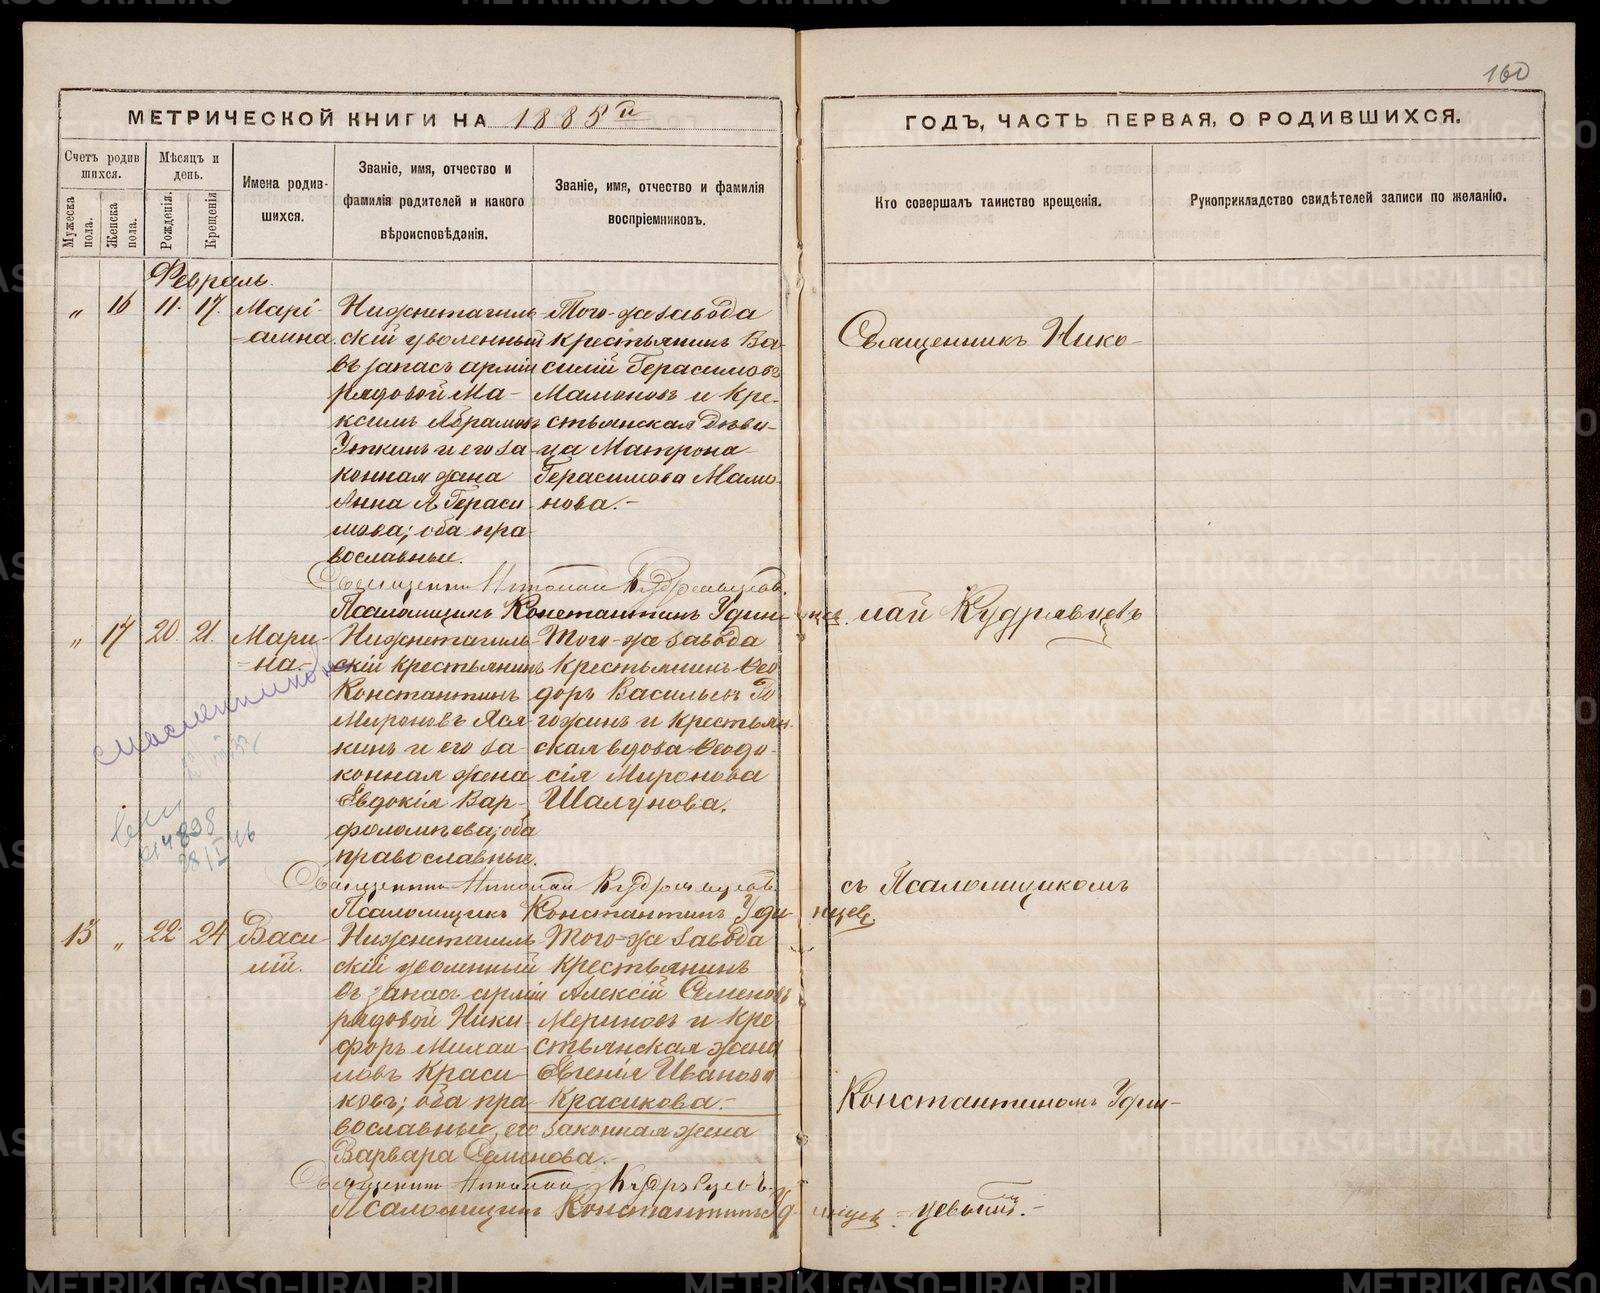 160
МЕТРИЧЕСКОЙ КНИГИ НА 1885й
ГОДЪ, ЧАСТЬ ПЕРВАЯ, О РОДИВШИХСЯ.
Счетъ родив
шихся.
Мужеска
пола.
Женска
пола.
Мѣсяцъ и
день.
Рожденія.
Крещенія
Имена родив-
шихся.
Званіе, имя, отчество и
фамилія родителей и какого
вѣроисповѣданія.
Званіе, имя, отчество и фамилія
воспріемниковъ.
Кто совершалъ таинство крещенія.
Рукоприкладство свидѣтелей записи по желанію.
Февраль.
„ 16 11. 17.
Марі-
-амна.
Нижнетагиль-
скій уволенный
въ запасъ арміи
рядовой Ма-
ксимъ Абрамовъ
Уткинъ и его за-
конная жена
Анна Гераси
мова; оба пра-
вославные.
Того-же завода
крестьянинъ Ва-
силій Герасимовъ
Мамоновъ и кре-
стьянская дѣви-
ца Матрона
Герасимова Мамо-
нова.-
Священникъ Николай Кудрявцевъ.
Псаломщикъ Константинъ Удинцев.
„ 17 20. 21.
Мари-
-на.-
Нижнетагиль-
скій крестьянинъ
Константинъ
Мироновъ Яся
кинъ и его за-
конная жена
Евдокія Вар-
фоломѣева; оба
православные.
Того-же завода
крестьянинъ Ѳео
доръ Васильевъ По
гожинъ и крестьян-
ская вдова Ѳеодо-
сія Миронова
Шалунова.
Священникъ Николай Кудрявцевъ.
Псаломщикъ Константинъ Удинцев.
4898
15 „ 22 24
Васи
лій.
Нижнетагиль
скій уволенный
въ запасъ арміи
рядовой Ники-
форъ Михаи-
ловъ Краси-
ковъ; оба пра-
вославные, его законная жена
Варвара Семенова.-
Того-же завода
крестьянинъ
Алексій Семеновъ
Мериновъ и кре
стьянская жена
Евгенія Иванова
Красикова.-
Священникъ Николай Кудрявцевъ.
Псаломщикъ Константинъ Удинцев.
Священникъ Нико-
лай Кудрявцевъ
съ Псаломщикомъ
Константиномъ Удин-
цевымъ.-
METRIKI.GASO-URAL.RU